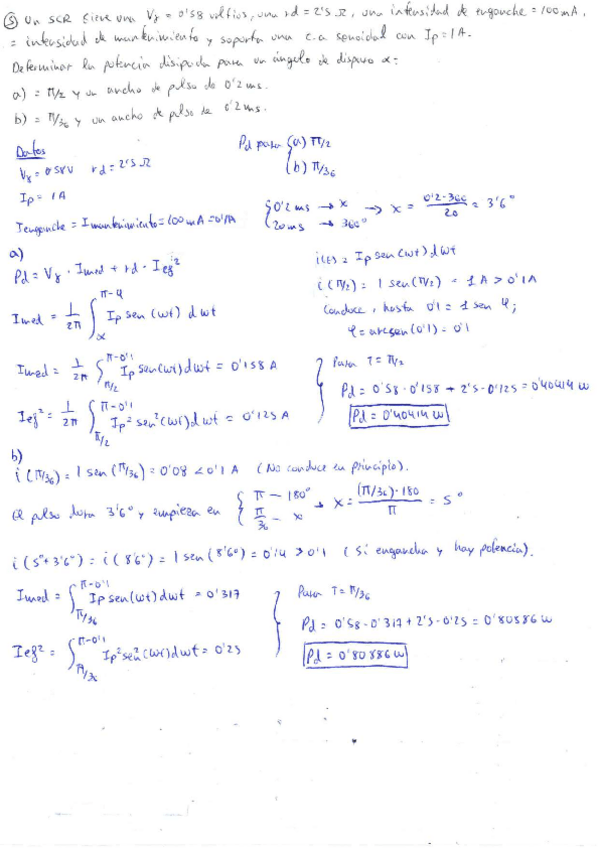 ③ Un SCR tiene una Vγ = 0'58 voltios, una rd = 2'5 Ω, una intensidad de enganche = 100 mA,
= intensidad de mantenimiento y soporta una c.a senoidal con Ip = 1A.
Determinar la potencia disipada para un ángulo de disparo α:
a) = π/2 y un ancho de pulso de 0'2 ms.
b) = π/36 y un ancho de pulso de 0'2 ms.
Datos
Vγ = 0'58V rd = 2'5 Ω
Ip = 1A
Ienganche = Imantenimiento = 100 mA = 0'1A
Pd para { (a) π/2
(b) π/36
{ 0'2 ms → x
20 ms → 360°
→ x = (0'2·360)/20 = 3'6°
a)
Pd = Vγ · Imed + rd · Ief²
Imed = 1/2π ∫_α^(π-φ) Ip sen(wt) dwt
Imed = 1/2π ∫_(π/2)^(π-0'1) Ip sen(wt) dwt = 0'158 A
Ief² = 1/2π ∫_(π/2)^(π-0'1) Ip² sen²(wt) dwt = 0'125 A
i(t) = Ip sen(wt) dwt
i(π/2) = 1 sen(π/2) = 1A > 0'1A
Conduce, hasta 0'1 = 1 sen φ;
φ = arcsen(0'1) = 0'1
Para T = π/2
Pd = 0'58 · 0'158 + 2'5 · 0'125 = 0'40414 w
Pd = 0'40414 w
b)
i(π/36) = 1 sen(π/36) = 0'08 < 0'1 A (No conduce en principio).
El pulso dura 3'6° y empieza en { π – 180°
π/36 – x
→ x = ((π/36)·180)/π = 5°
i(5°+3'6°) = i(8'6°) = 1 sen(8'6°) = 0'14 > 0'1 (Si engancha y hay potencia).
Imed = ∫_(π/36)^(π-0'1) Ip sen(wt) dwt = 0'317
Ief² = ∫_(π/36)^(π-0'1) Ip² sen²(wt) dwt = 0'25
Para T = π/36
Pd = 0'58 · 0'317 + 2'5 · 0'25 = 0'80886 w
Pd = 0'80886 w